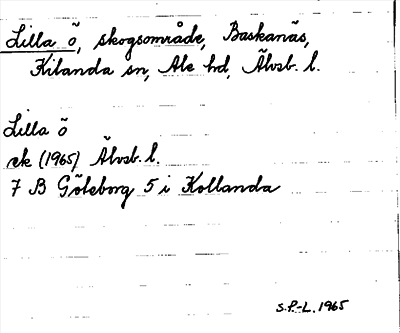 Lilla ö, skogsområde, Baskanäs,
Kilanda sn, Ale hd, Älvsb. l.
Lilla ö
ek (1965) Älvsb. l.
7 B Göteborg 5 i Kollanda
S.P.-L. 1965